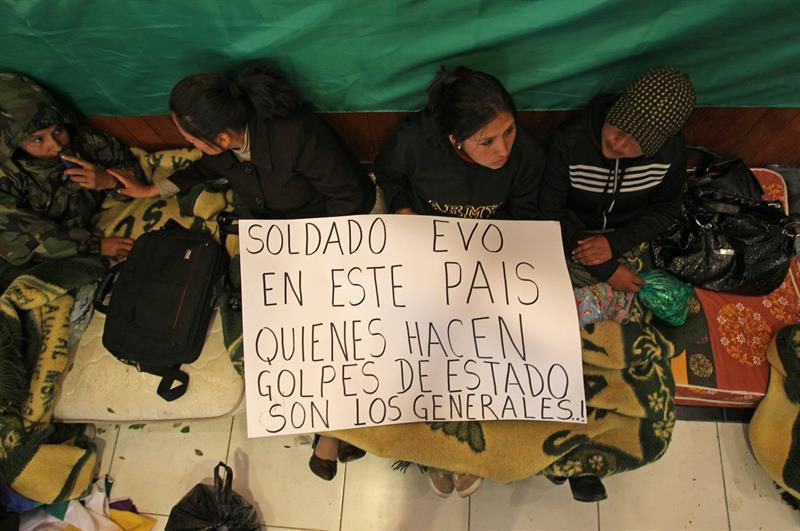 SOLDADO EVO
EN ESTE PAIS
QUIENES HACEN
GOLPES DE ESTADO
SON LOS GENERALES.!
ARMY